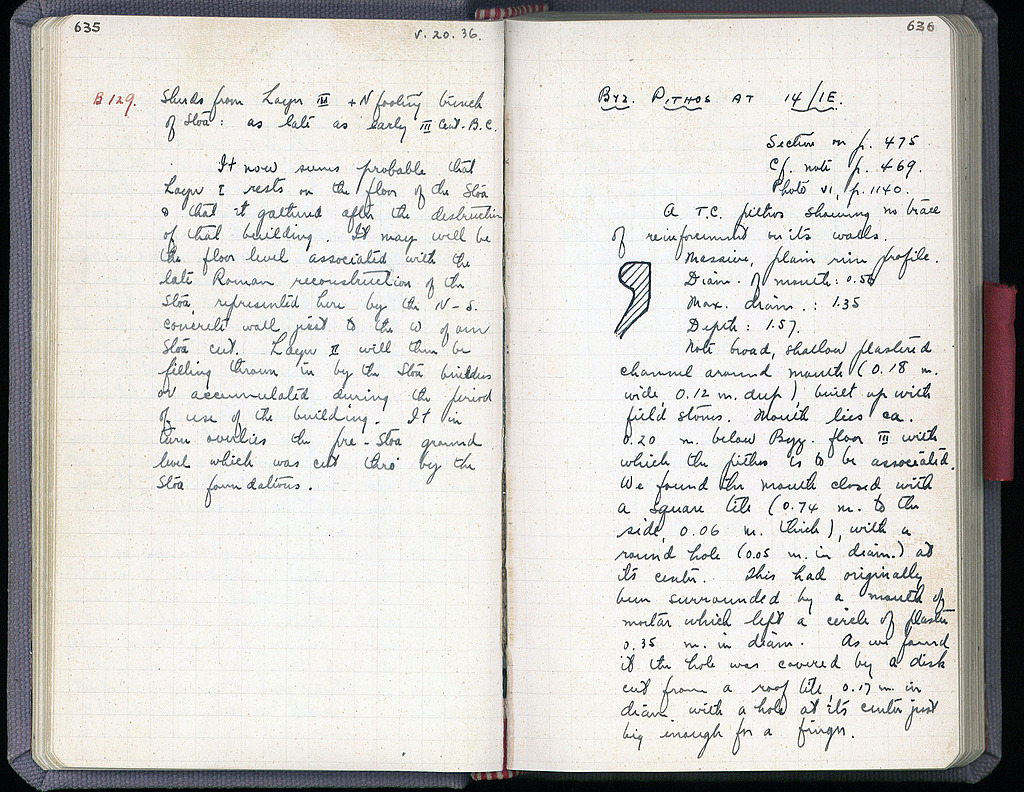 635
V. 20. 36.
B 129.
Sherds from Layer III + N footing trench
of Stoa: as late as early III cent. B.C.
It now seems probable that
Layer I rests on the floor of the Stoa
& that it gathered after the destruction
of that building. It may well be
the floor level associated with the
late Roman reconstruction of the
Stoa, represented here by the N-S.
concrete wall just to the W of our
Stoa cut. Layer II will then be
filling thrown in by the Stoa builders
or accumulated during the period
of use of the building. It in
turn overlies the pre-Stoa ground
level which was cut thro' by the
Stoa foundations.
636
Byz. Pithos at 14/ΙΕ.
Section on p. 475
Cf. note p. 469.
Photo VI, p. 1140.
A T.C. pithos showing no trace
of reinforcement on its walls.
Massive, plain rim profile.
Diam. of mouth: 0.56
Max. diam.: 1.35
Depth: 1.57.
Note broad, shallow plastered
channel around mouth (0.18 m.
wide, 0.12 m. deep), built up with
field stones. Mouth lies ca.
0.20 m. below Byz. floor III with
which the pithos is to be associated.
We found the mouth closed with
a square tile (0.74 m. to the
side, 0.06 m. thick), with a
round hole (0.05 m. in diam.) at
its center. This had originally
been surrounded by a mouth of
mortar which left a circle of plaster
0.35 m. in diam. As we found
it the hole was covered by a disk
cut from a roof tile, 0.17 m. in
diam. with a hole at its center just
big enough for a finger.